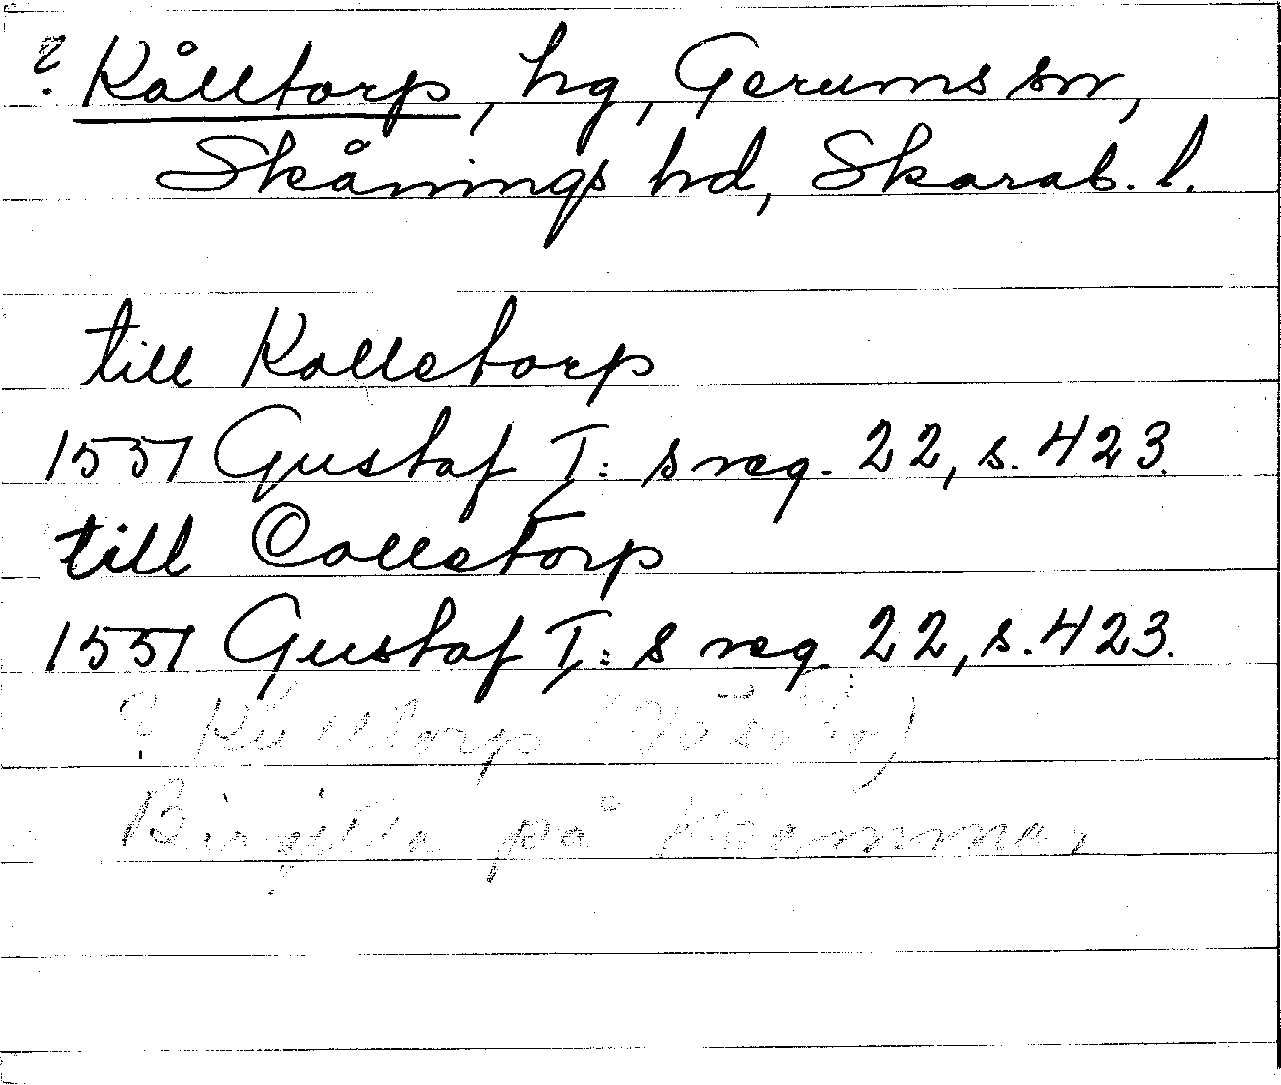 ? Kålltorp, hg, Gerums sn,
Skånings hd, Skarab. l.
till Kolletorp
1551 Gustaf I: s reg. 22, s. 423.
till Colletorp
1551 Gustaf I: s reg. 22, s. 423.
? Kulltorp
Birgitta på